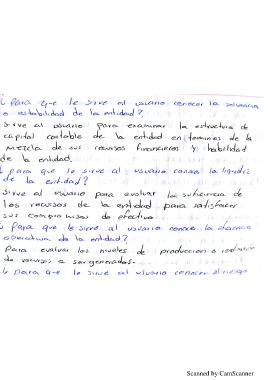 ¿ Para que le sirve al usuario conocer la solvencia
o estabilidad de la entidad?
Sirve al usuario para examinar la estructura de
capital contable de la entidad en terminos de la
mezcla de sus recursos financieros y habilidad
de la entidad.
¿ Para que le sirve al usuario conocer la liquidez
de la entidad?
Sirve al usuario para evaluar la suficiencia de
los recursos de la entidad para satisfacer
sus compromisos de efectivo.
¿ Para que le sirve al usuario conocer la eficiencia
operativa de la entidad?
Para evaluar los niveles de produccion o
de recursos a ser generados.
¿ Para que le sirve al usuario conocer el riesgo
Scanned by CamScanner